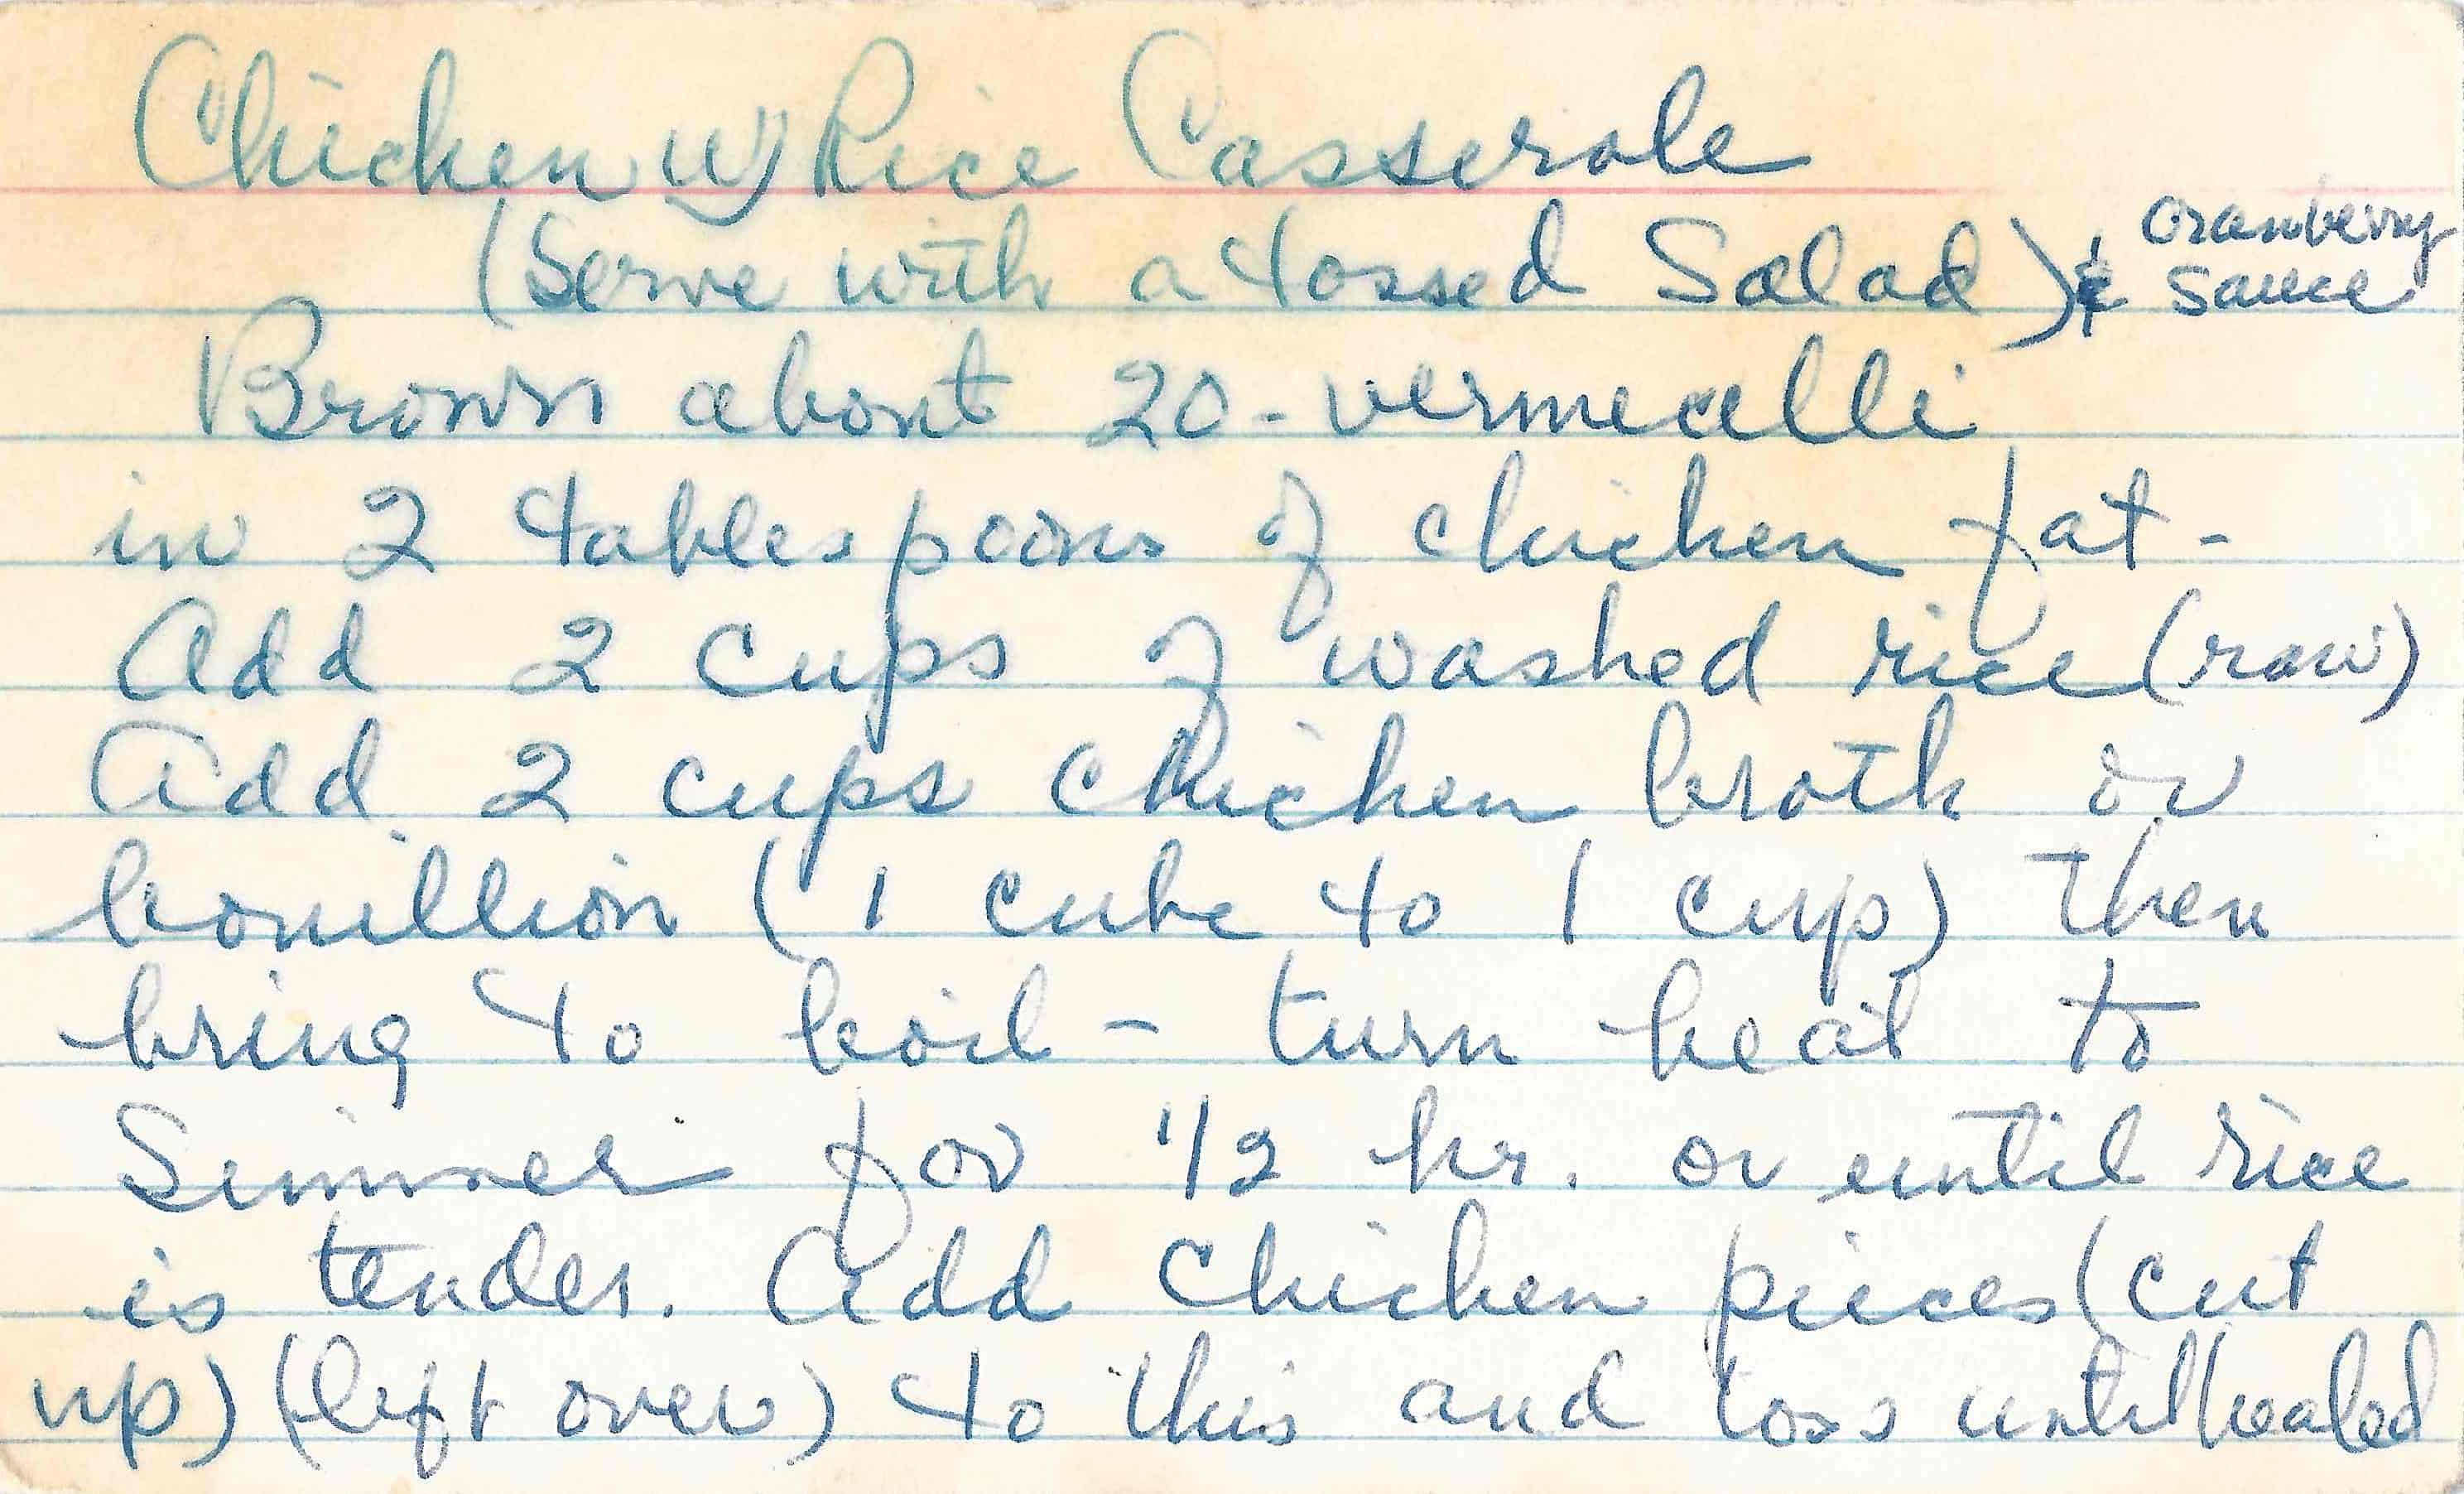 Chicken w/ Rice Casserole
(Serve with a tossed Salad) & Cranberry Sauce
Brown about 20 - vermicelli
in 2 tablespoons of chicken fat -
Add 2 cups of washed rice (raw)
Add 2 cups chicken broth or
bouillion (1 cube to 1 cup) then
bring to boil - turn heat to
Simmer for 1/2 hr. or until rice
is tender. Add chicken pieces (cut
up) (left over) to this and toss until heated